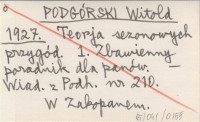 PODGÓRSKI Witold
1927. Teorja sezonowych
przygód. 1. Zbawienny
poradnik dla panów.
Wiad. z Podh. nr 210.
W Zakopanem.